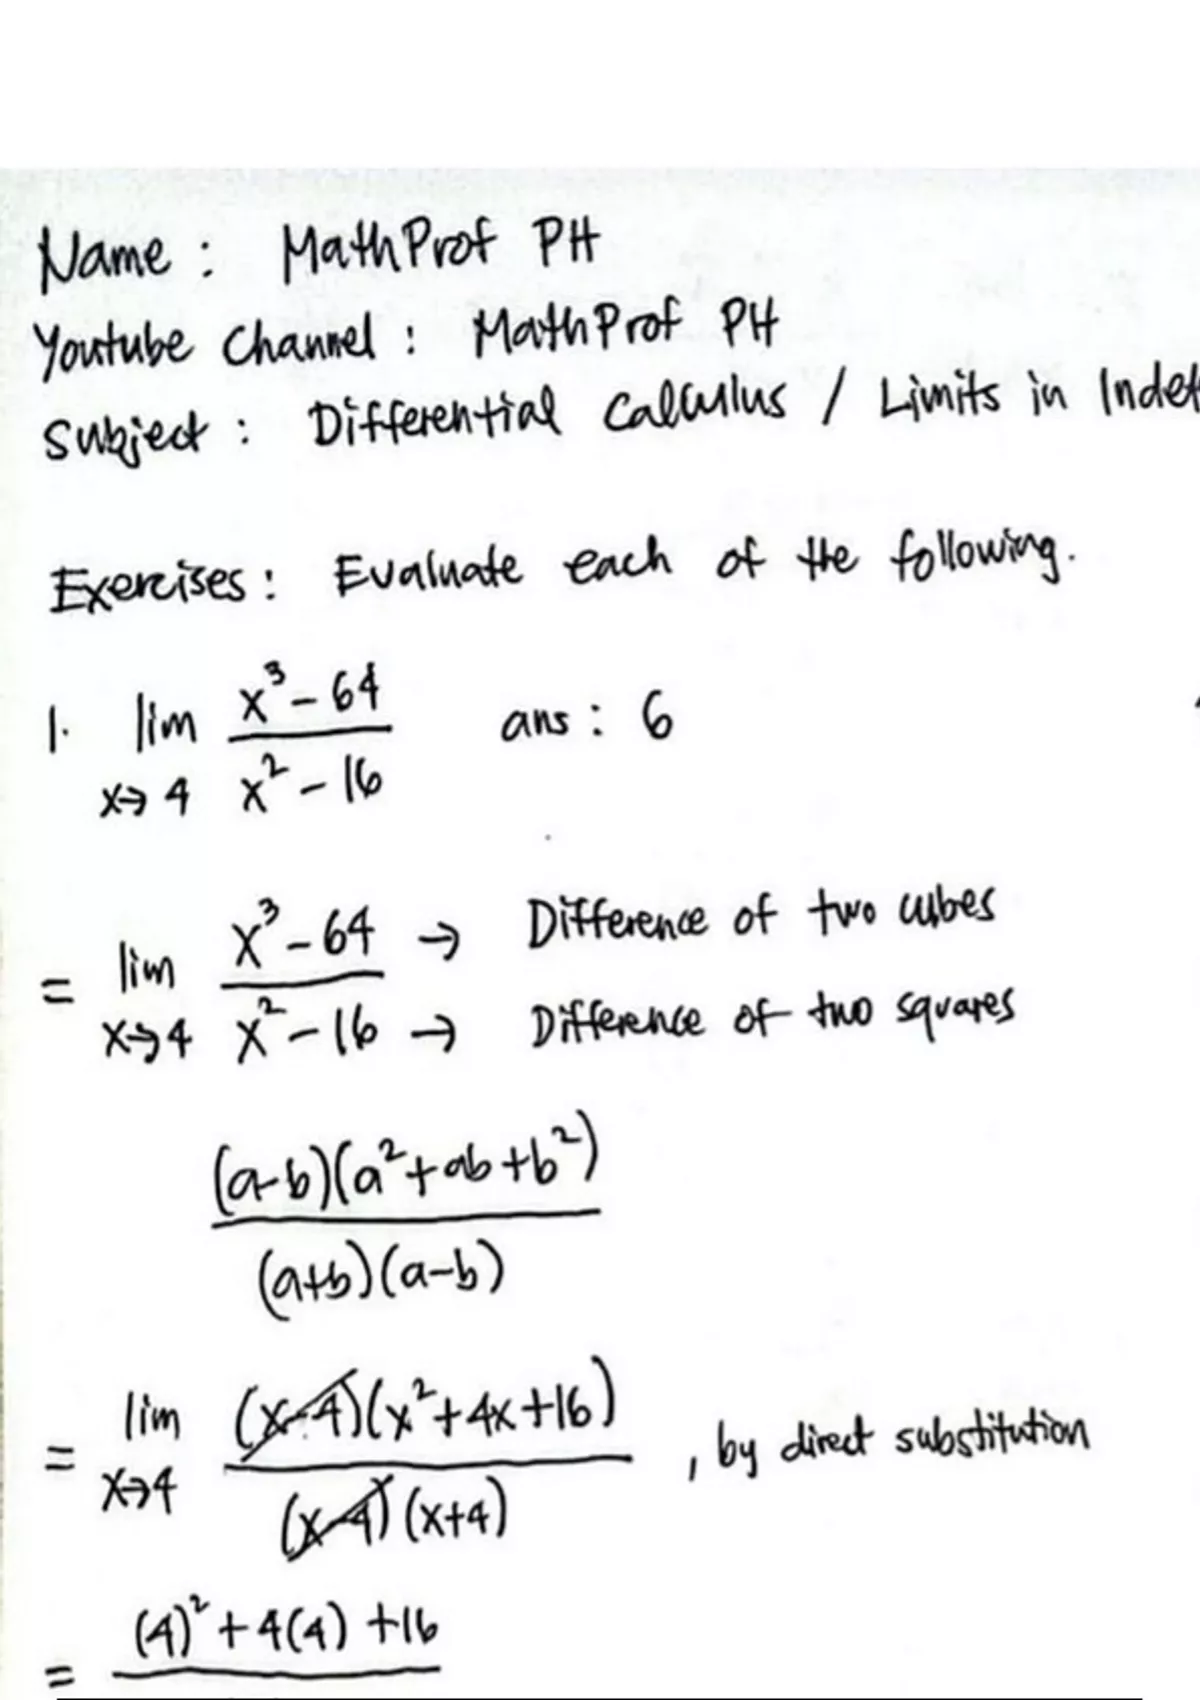 Name : MathProf PH
Youtube Channel : MathProf PH
Subject : Differential Calculus / Limits in Indet
Exercises : Evaluate each of the following.
1. lim x→4 (x³ - 64)/(x² - 16) ans : 6
= lim x→4 (x³ - 64)/(x² - 16) → Difference of two cubes → Difference of two squares
(a-b)(a²+ab+b²)
(a+b)(a-b)
= lim x→4 (x-4)(x²+4x+16)/(x-4)(x+4) , by direct substitution
= (4)² + 4(4) + 16